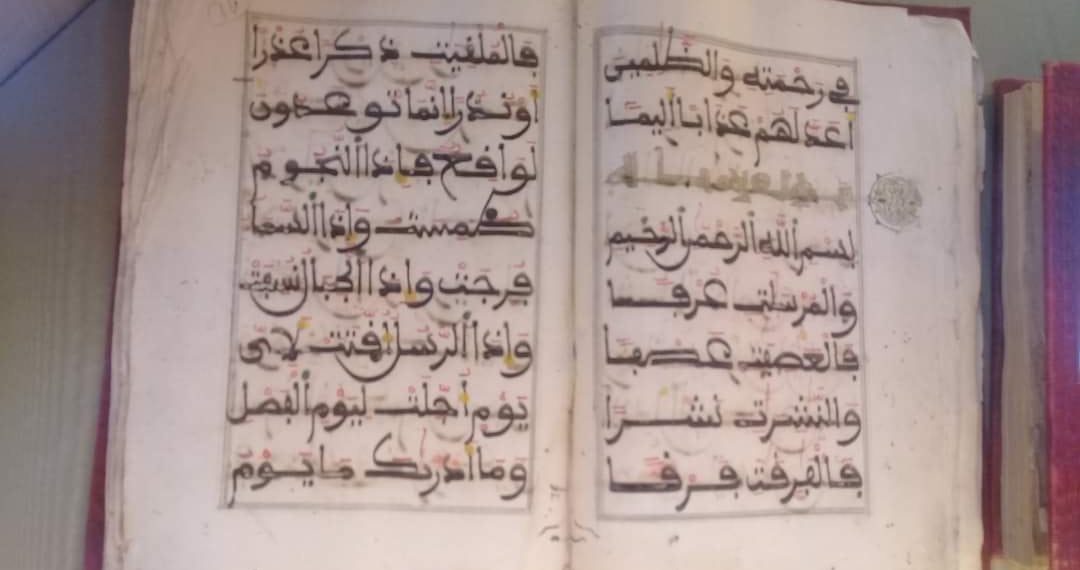 في رحمته والظلمين
أعد لهم عذابا أليما
بسم الله الرحمن الرحيم
والمرسلت عرفا
فالعصفت عصفا
والنشرت نشرا
فالفرقت فرقا
فالملقيت ذكرا عذرا
أو نذرا إنما توعدون
لواقع فإذا النجوم
طمست وإذا السما
فرجت وإذا الجبال نسفت
وإذا الرسل أقتت لأي
يوم أجلت ليوم الفصل
وما أدريك ما يوم